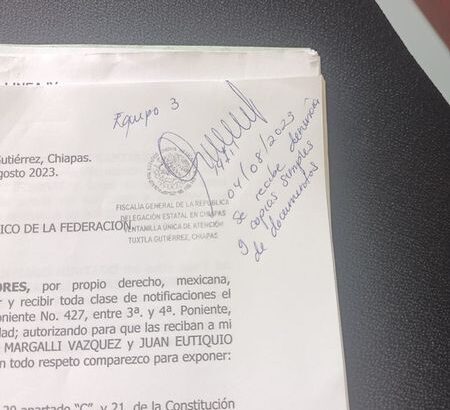 Equipo 3
04/08/2023
se recibe denuncia
y copias simples
de documentos
Gutiérrez, Chiapas.
agosto 2023.
FISCALÍA GENERAL DE LA REPÚBLICA
DELEGACIÓN ESTATAL EN CHIAPAS
VENTANILLA ÚNICA DE ATENCIÓN
TUXTLA GUTIÉRREZ, CHIAPAS
ICO DE LA FEDERACIÓN
ORES, por propio derecho, mexicana,
r y recibir toda clase de notificaciones el
oniente No. 427, entre 3ª. y 4ª. Poniente,
dad; autorizando para que las reciban a mi
MARGALLI VAZQUEZ y JUAN EUTIQUIO
n todo respeto comparezco para exponer:
20 apartado "C", y 21, de la Constitución